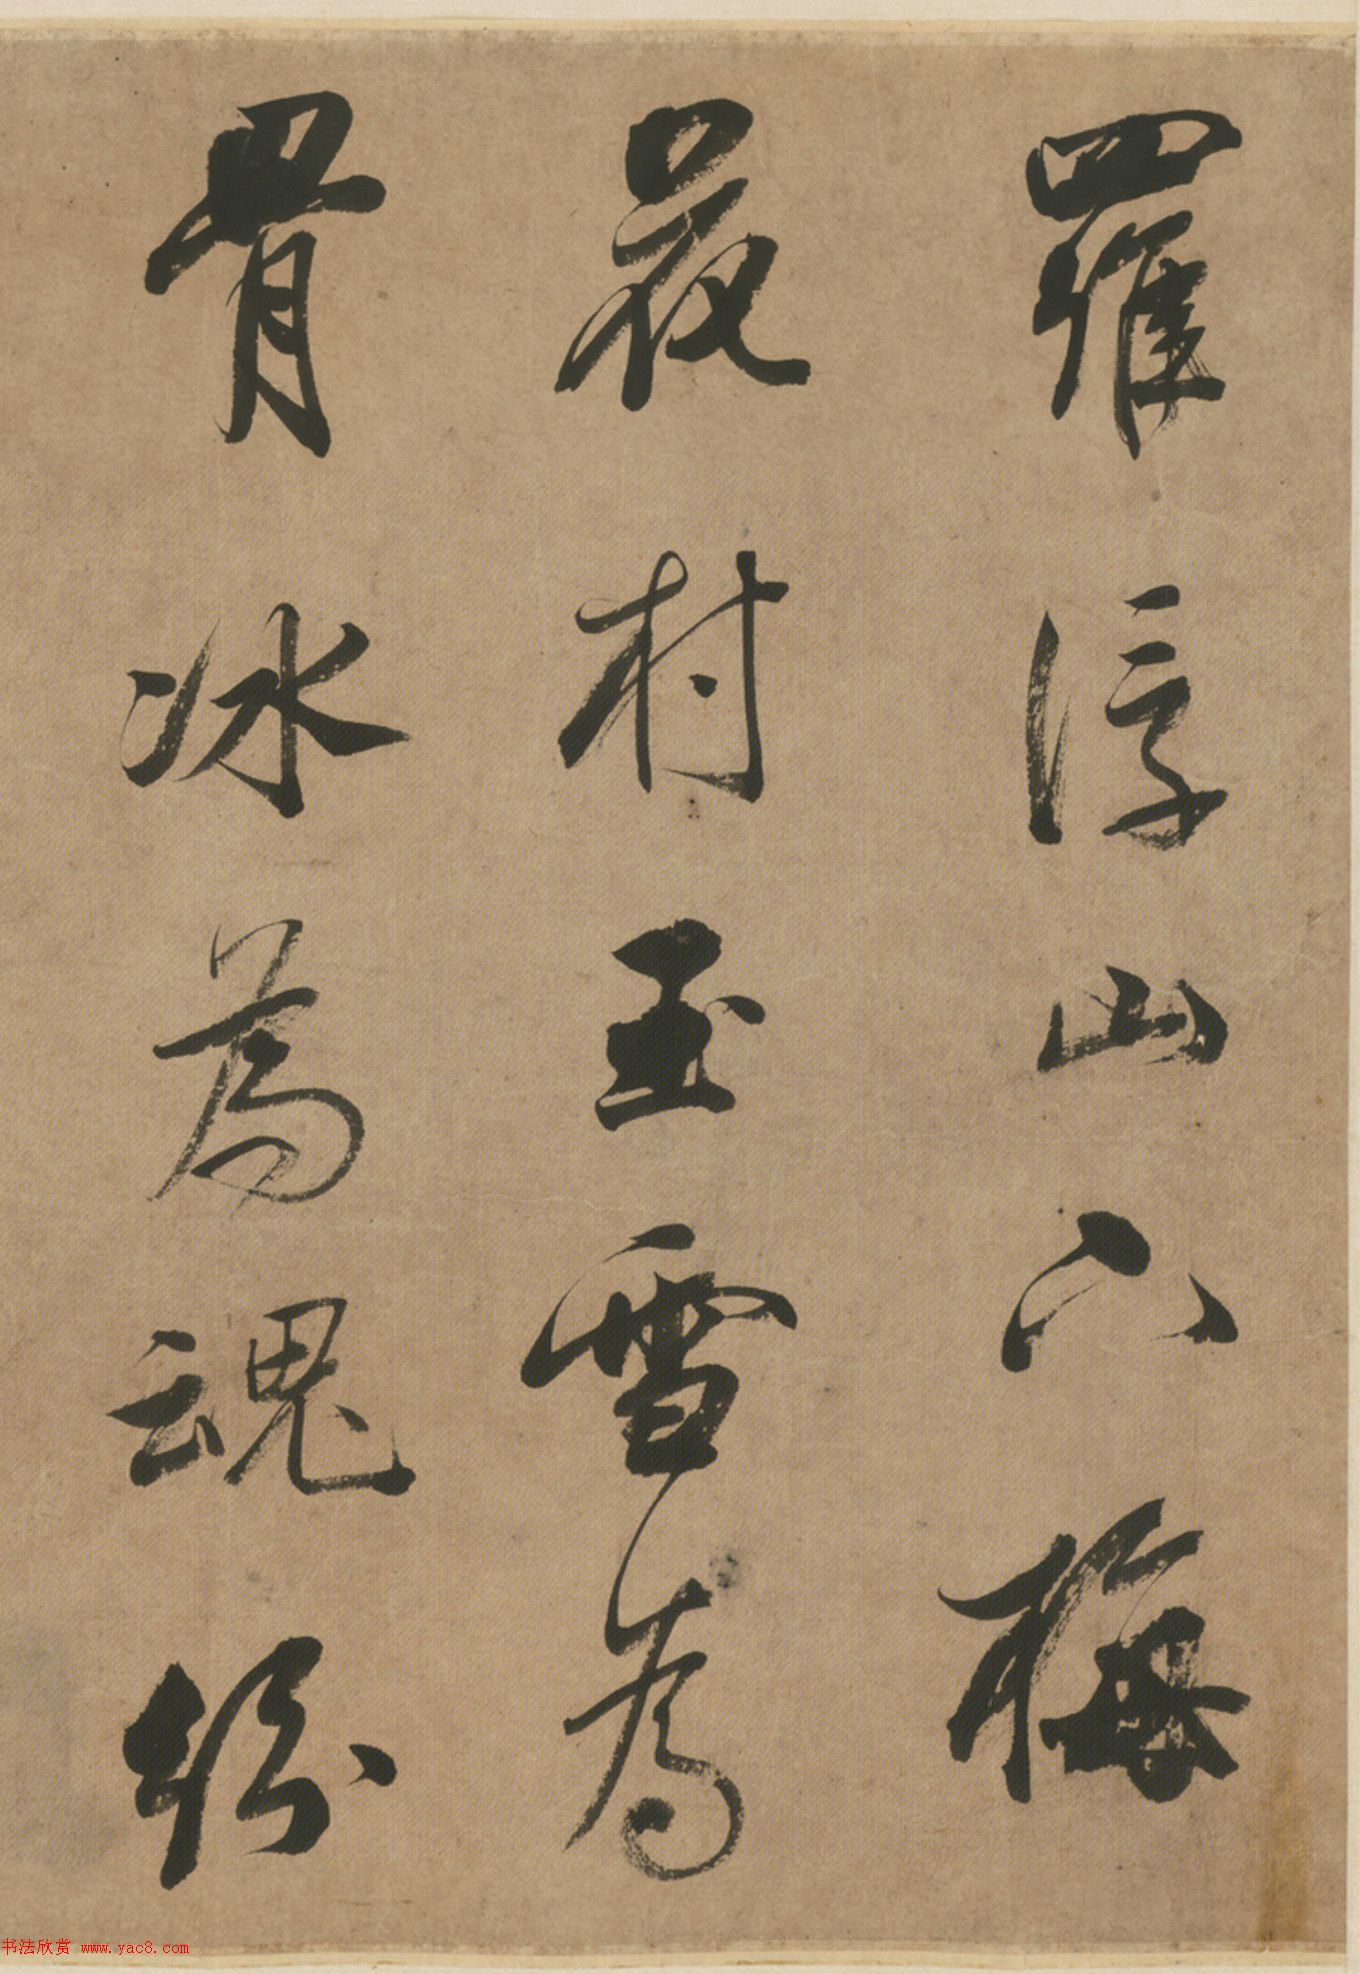 羅浮山下梅
花村玉雪為
骨冰為魂紛
书法欣赏 www.yac8.com